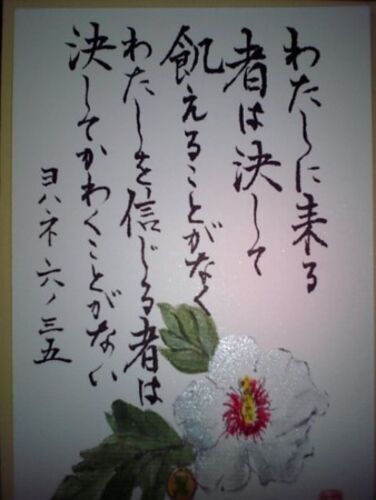 わたしに来る
者は決して
飢えることがなく
わたしを信じる者は
決してかわくことがない
ヨハネ六ノ三五